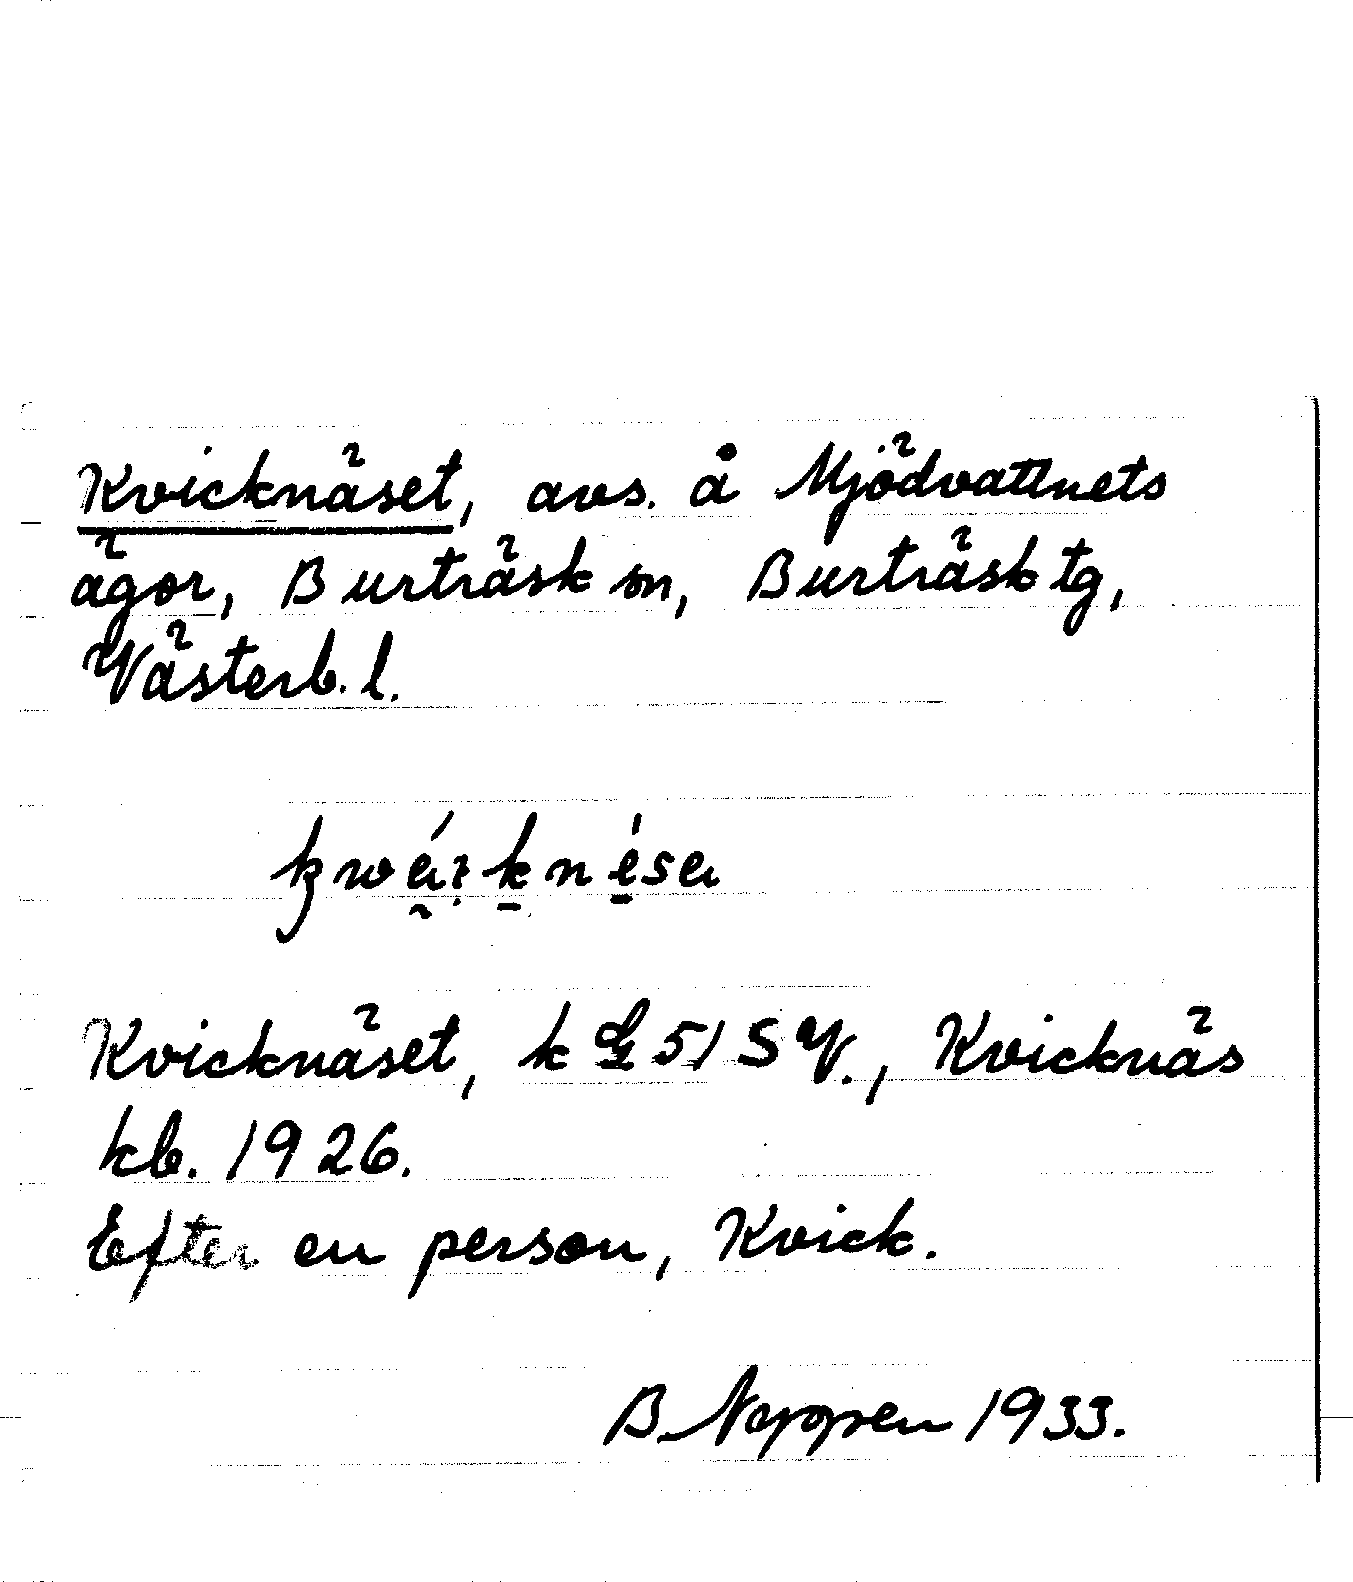 Kvicknäset, avs. å Mjödvattnets
ägor, Burträsk sn, Burträsk tg,
Västerb. l.
Kvicknäset, k G 51 S V., Kvicknäs
kb. 1926.
Efter en person, Kvick.
B. Noppen 1933.